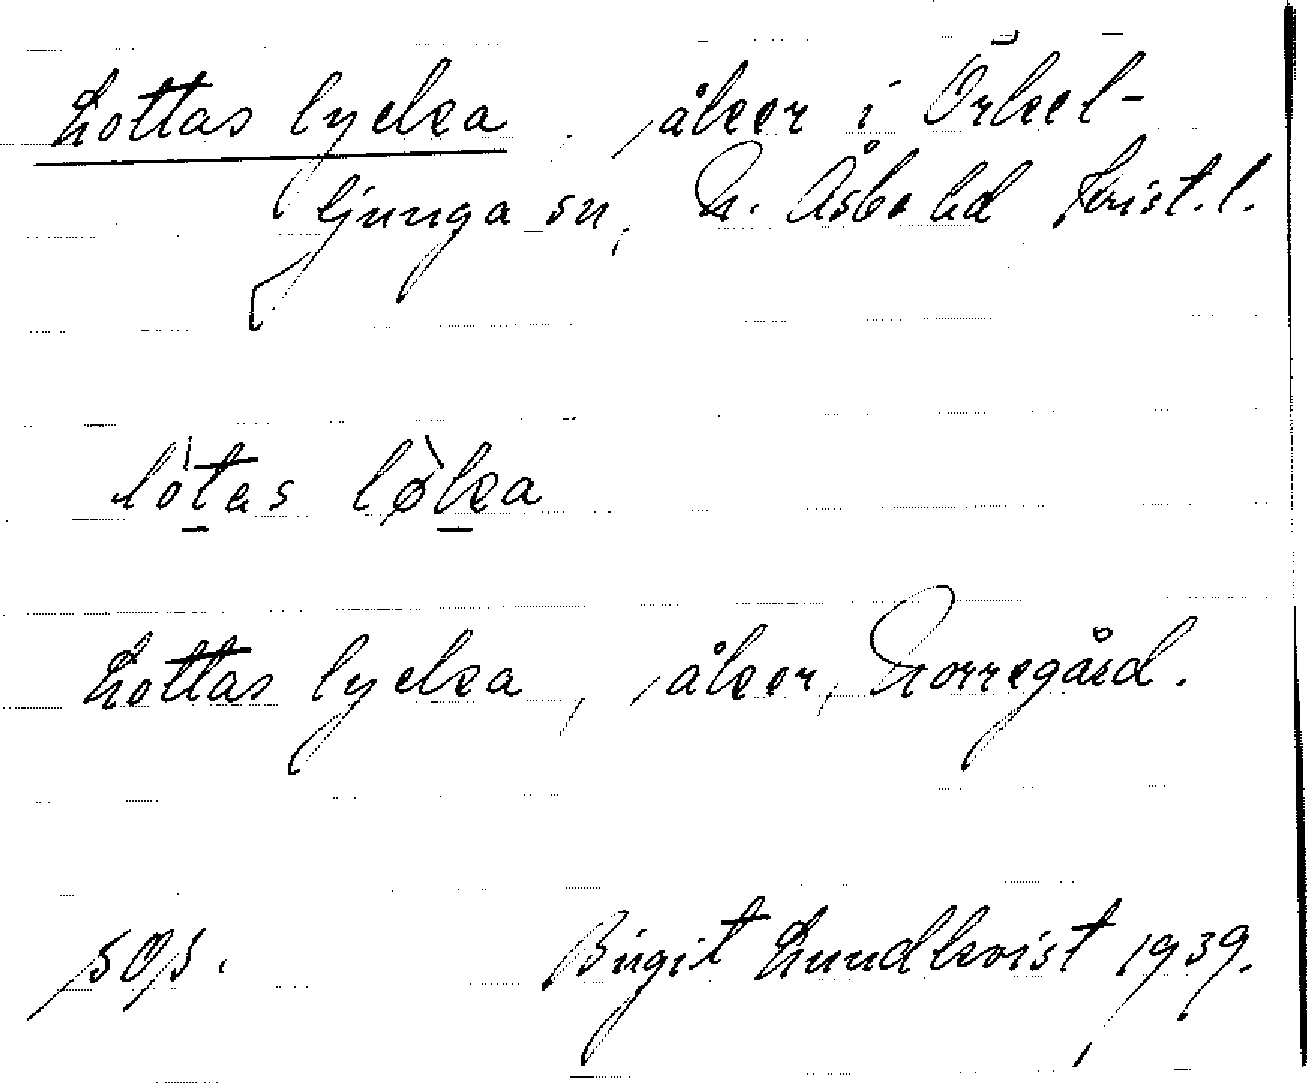 Lottas lycka, åker i Örkel-
ljunga sn, N. Åsbo hd Krist. l.
lòtas lø̀ka
Lottas lycka, åker, Norregård.
Birgit Lundkvist 1939.